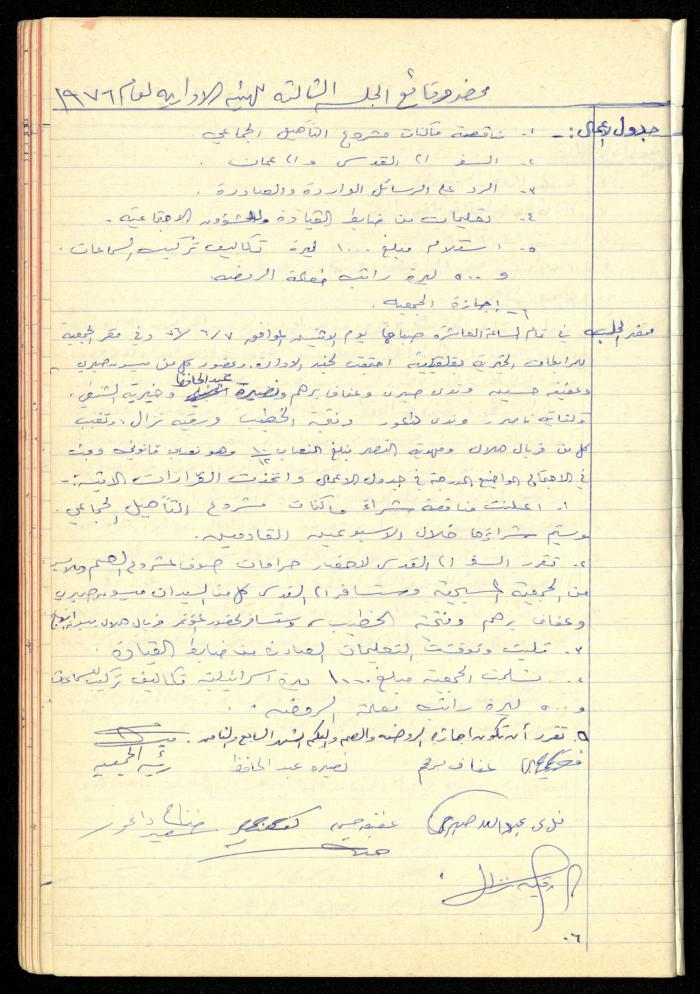 محضر وقائع الجلسة الثالثة للهيئة الادارية لعام ١٩٧٦
جدول الاعمال :- ١. مناقصة ماكنات مشروع التأهيل الجماعي.
٢. السفر الى القدس والى عمان.
٣. الرد على الرسائل الواردة والصادرة.
٤. تعليمات من ضابط القيادة والشؤون الاجتماعية.
٥. استلام مبلغ ١٠٠٠ ليرة تكاليف تركيب السماعات.
و ٥٠٠ ليرة راتب معلمة الروضة.
٦- اجازة الجمعية.
عقد الجلسة في تمام الساعة العاشرة صباحاً يوم الاثنين الموافق ٧ / ٦ / ٧٦ وفي مقر الجمعية
للرابطات الخيرية بقلقيلية اجتمعت لجنة الادارة وبحضور كل من ميسر صبري
وعفيفة حسين وندى صبري وعفاف برهم ونصيرة عبد الحافظ وخيرية الشنطي.
وكفاية ناصر وندى داعور وفتحية الخطيب ورقية نزال، وتغيب
كل من فريال هلال ومهدية النصر فبلغ النصاب ١٠/١٢ وهو نصاب قانوني وبحثت
في الاجتماع المواضيع المدرجة في جدول الاعمال واتخذت القرارات الاتية :-
١. اعلنت مناقصة شراء ماكنات مشروع التأهيل الجماعي.
وسيتم شراؤها خلال الاسبوعين القادمين.
٢. تقرر السفر الى القدس لاحضار حرامات صوف لمشروع الصم وملابس
من الجمعية المسيحية وستسافر الى القدس كل من السيدات ميسر صبري
وعفاف برهم وفتحية الخطيب، وستسافر لحضور المؤتمر فريال هلال
٣. تليت ونوقشت التعليمات الصادرة من ضابط القيادة.
٤. تسلمت الجمعية مبلغ ١٠٠٠ ليرة اسرائيلية تكاليف تركيب السماعات
و ٥٠٠ ليرة راتب معلمة الروضة.
٥. تقرر أن تكون اجازة الروضة والصم والبكم الشهر السابع والثامن.
عفاف برهم نصيره عبد الحافظ رئيسة الجمعية
ندى عبدالله صبري عفيفه حسين داعور
رقيه نزال
٠٦